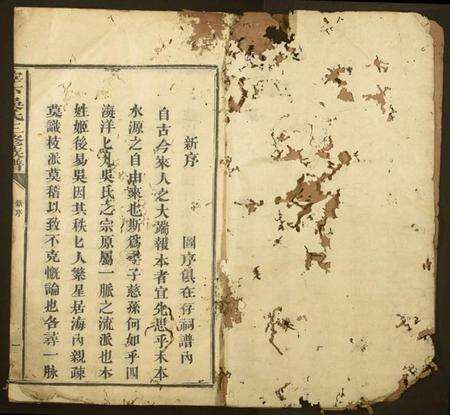 新序
圖序俱在仔祠譜內
自古今來人之大端報本者宜先思乎木本
水源之自由來也斯為孝子慈孫何如乎四
海洋上凡吳氏之宗原屬一脈之流派也本
姓姬後易吳因其秩匕人繁星居海內親疎
莫識枝派莫稽以致不克慨論也各尋一脈
吳氏三修族譜
新序